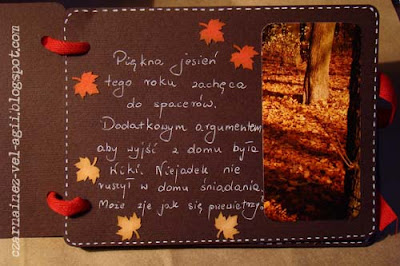 Piękna jesień
tego roku zachęca
do spacerów.
Dodatkowym argumentem,
aby wyjść z domu była
Kiki. Niejadek nie
ruszył w domu śniadania.
Może zje jak się przewietrzy.
czarnainez-vel-agii.blogspot.com